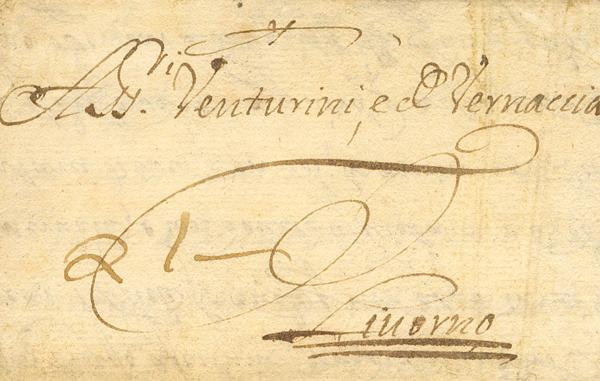 A SS.ri Venturini, e del Vernaccia
R 1—
Livorno